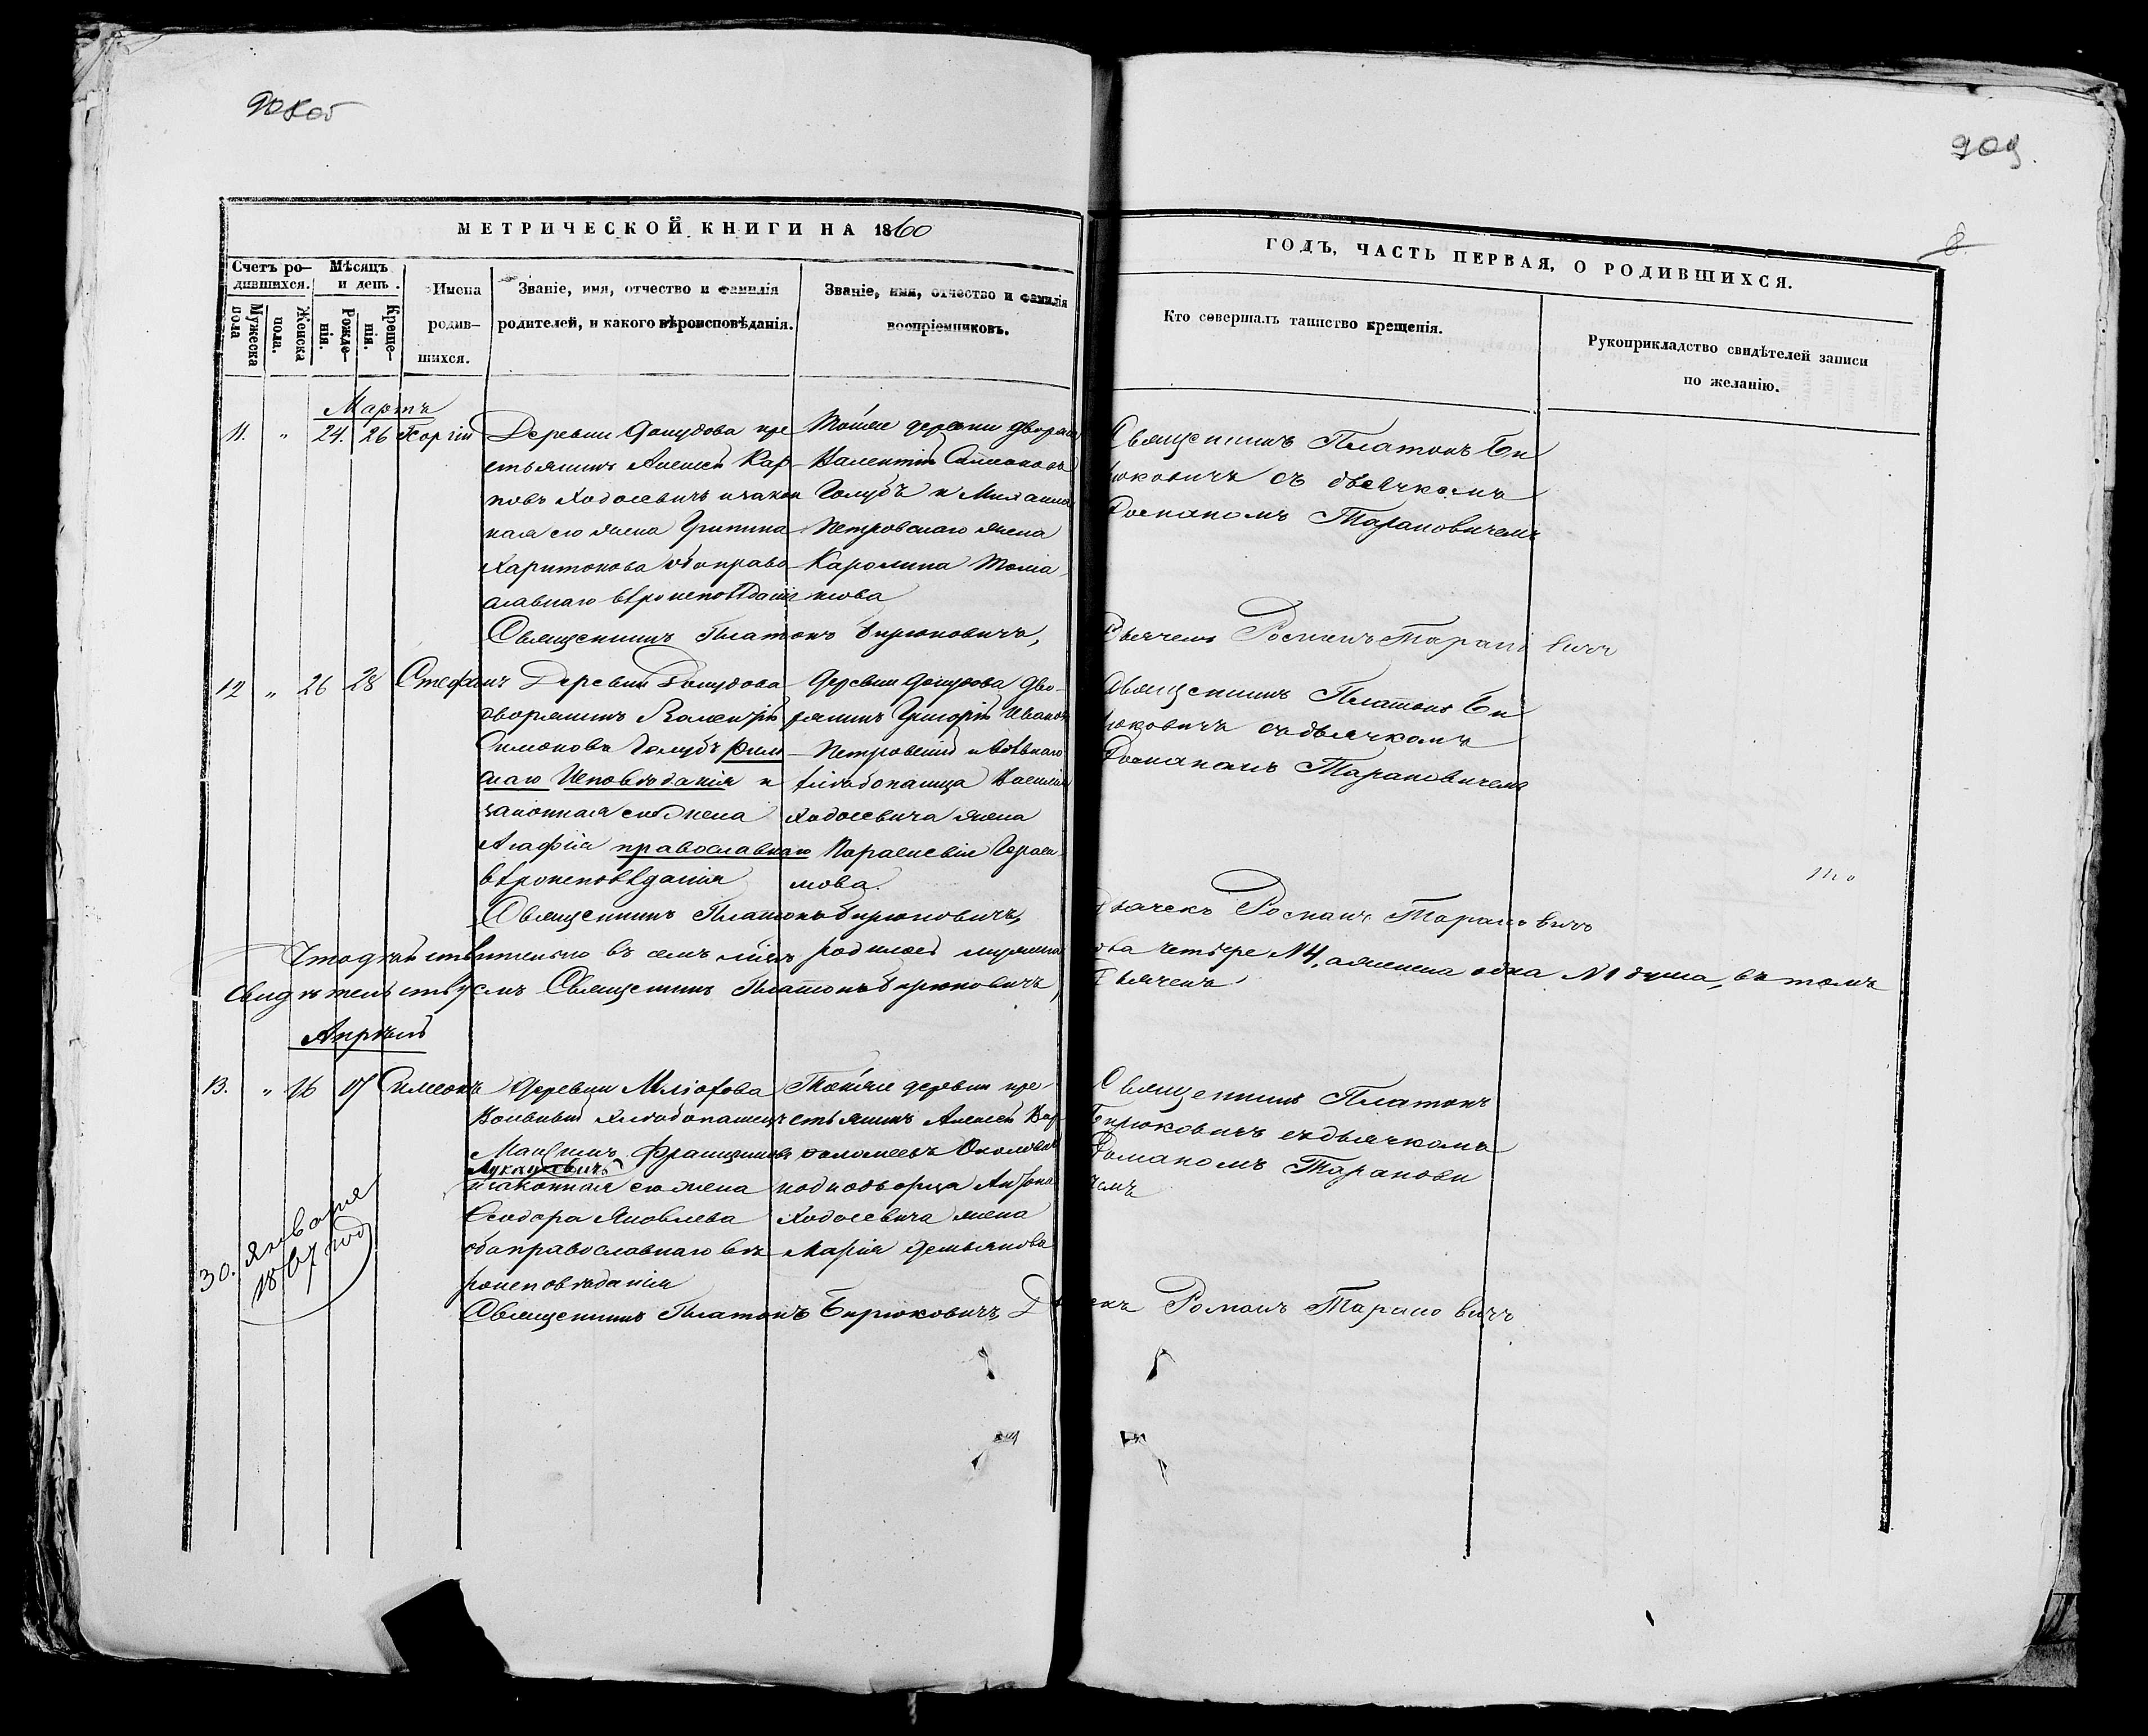 908 об
909.
8.
МЕТРИЧЕСКОЙ КНИГИ НА 1860
ГОДЪ, ЧАСТЬ ПЕРВАЯ, О РОДИВШИХСЯ.
Счетъ ро-
дившихся.
Мужеска
пола
Женска
пола.
Мѣсяцъ
и день.
Рожде-
нія.
Креще-
нія.
Имена
родив-
шихся.
Званіе, имя, отчество и фамилія
родителей, и какого вѣроисповѣданія.
Званіе, имя, отчество и фамилія
воспріемниковъ.
Кто совершалъ таинство крещенія.
Рукоприкладство свидѣтелей записи
по желанію.
Мартъ
11. " 24. 26 Георгій
Деревни кре
стьянинъ Алексей Кар
повъ Ходосевичъ и закон
ная его жена Гриппина
Харитонова оба право
славнаго вѣроисповѣданія
Тойже деревни дворян
Валентій Симоновъ
Голубъ и Михаила
Петровскаго жена
Каролина
Священникъ Платонъ Би
рюковичъ съ дьячкомъ
Романомъ Тарановичемъ
Священникъ Платонъ Бирюковичъ,
Дьячекъ Романъ Тарановичъ
12 " 26 28 Стефанъ
Деревни
дворянинъ
Симоновъ Голубъ рим
скаго Исповѣданія и
законная его жена
Агафія православнаго
вѣроисповѣданія
Деревни дво-
рянинъ Григорій Ивановъ
Петровскій и
хлѣбопашца
Ходосевича жена
Параскевія Гераси
мова.
Священникъ Платонъ Би
рюковичъ съ дьячкомъ
Романомъ Тарановичемъ
Священникъ Платонъ Бирюковичъ,
Дьячекъ Романъ Тарановичъ
Что дѣйствительно въ семъ родилось мужеска
пола четыре № 4, а женска одна № 1 душа, въ томъ
Свидѣтельствуемъ Священникъ Платонъ Бирюковичъ,
Дьячекъ
Апрѣль
13. " 16 17 Симеонъ
Деревни
Вольный хлѣбопашецъ
Максимъ
Лукашевичъ
и законная его жена
Ѳеодора Яковлева
оба православнаго вѣ
роисповѣданія
Тойже деревни кре-
стьянинъ Алексей Вар
и
однодворца Антона
Ходосевича жена
Марія Демьянова
Священникъ Платонъ
Бирюковичъ съ дьячкомъ
Романомъ Таранови
чемъ
30. Января
1867 год
Священникъ Платонъ Бирюковичъ, Дьячекъ Романъ Тарановичъ